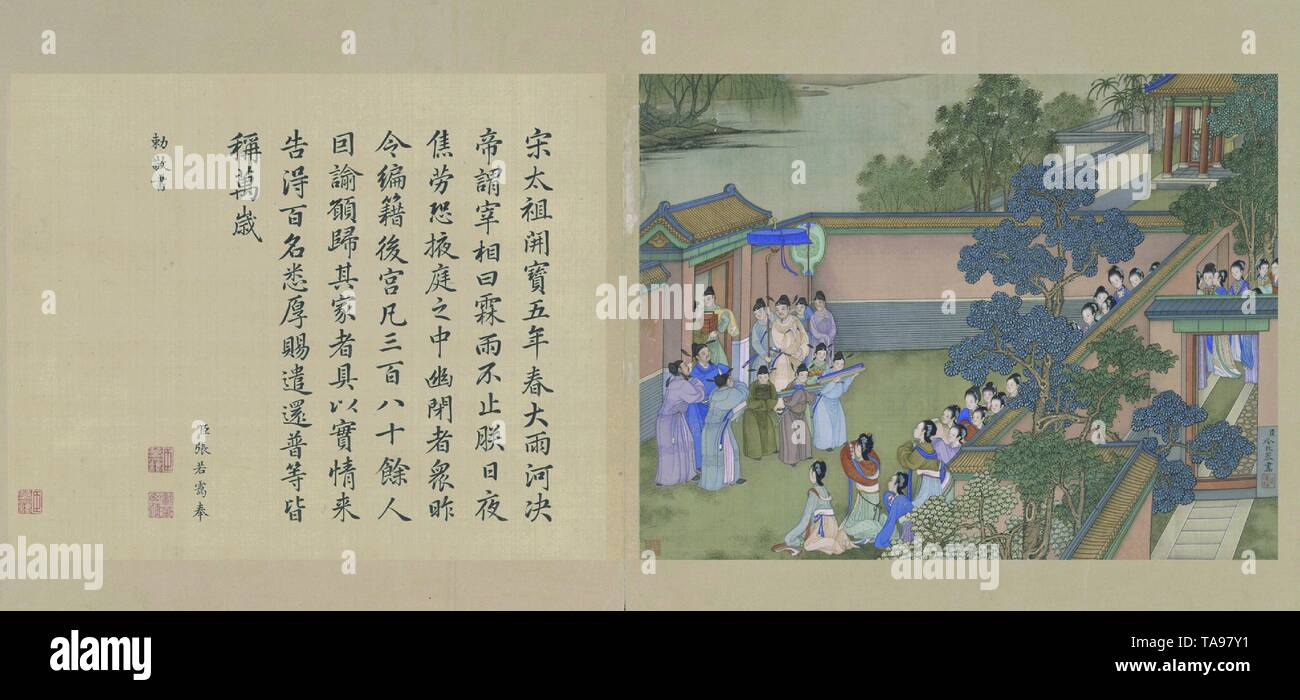 宋太祖開寶五年春大雨河决
帝謂宰相曰霖雨不止朕日夜
焦劳恐掖庭之中幽閉者眾昨
令編籍後宮凡三百八十餘人
囙諭願歸其家者具以實情来
告淂百名悉厚賜遣還普等皆
稱萬歲
臣張若靄奉
勅敬書
臣余穉畫
alamy
a
alamy stock photo
TA97Y1
www.alamy.com